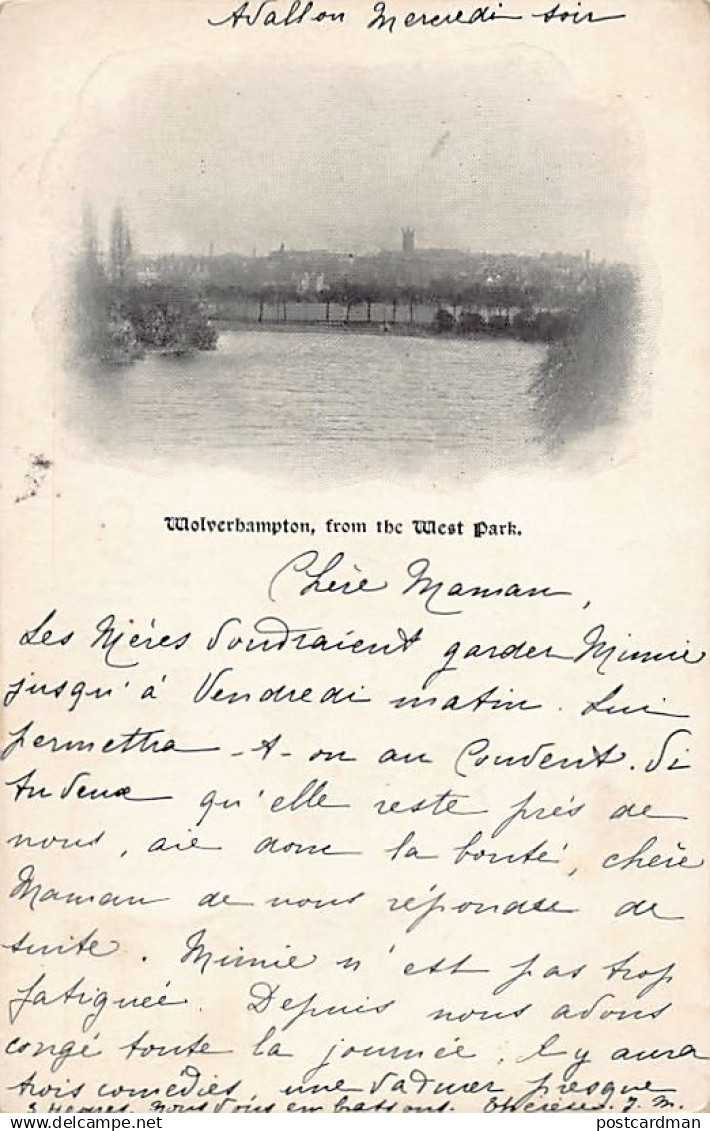 Avallon Mercredi soir
Wolverhampton, from the West Park.
Chère Maman,
Les Mières voudraient garder Mimie
jusqu'à Vendredi matin. Lui
permettra-t-on au Couvent. Si
tu veux qu'elle reste près de
nous, aie donc la bonté, chère
Maman de nous répondre de
suite. Mimie n'est pas trop
fatiguée. Depuis nous avons
congé toute la journée, il y aura
trois comédies, une durer presque
3 heures. Nous vous embrassons. Thérèse. J. M.
postcardman
postcardman